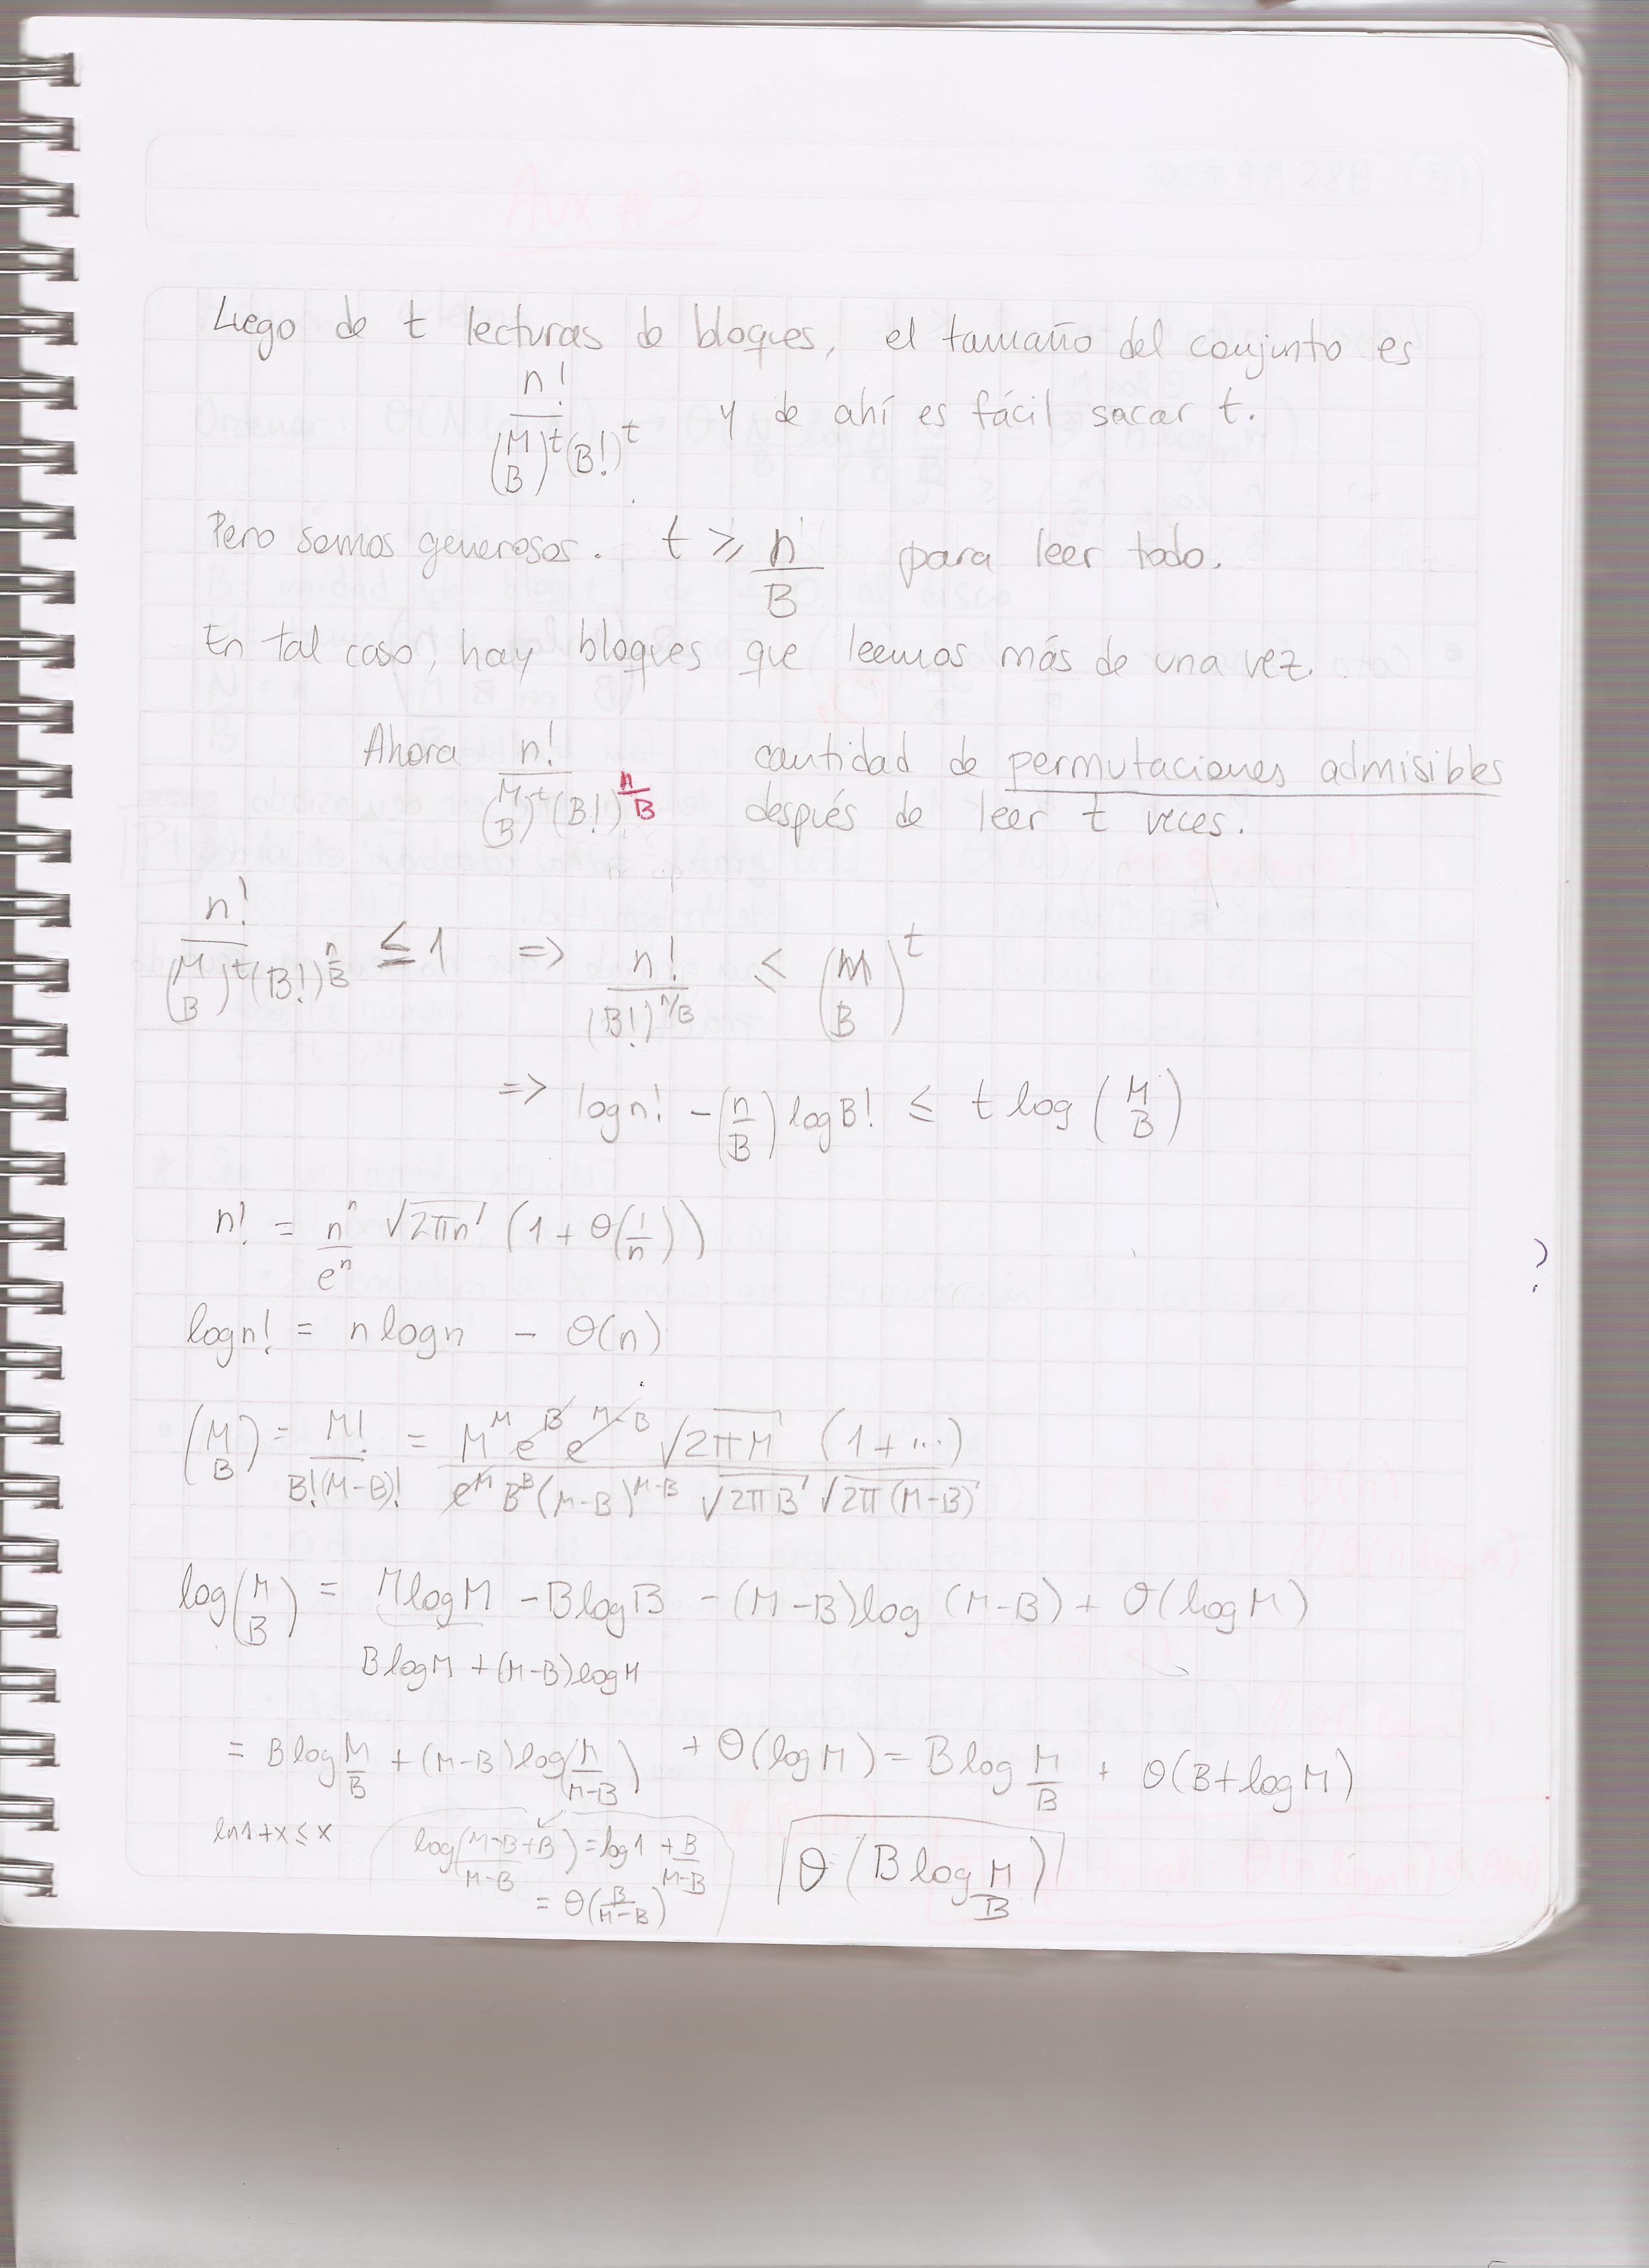 Luego de t lecturas de bloques, el tamaño del conjunto es
n! / (M B)^t (B!)^t y de ahí es fácil sacar t.
Pero somos generosos. t ≥ n/B para leer todo.
En tal caso, hay bloques que leemos más de una vez.
Ahora n! / (M B)^t (B!)^(n/B) cantidad de permutaciones admisibles
después de leer t veces.
n! / (M B)^t (B!)^(n/B) ≤ 1 => n! / (B!)^(n/B) ≤ (M B)^t
=> log n! - (n/B) log B! ≤ t log (M B)
n! = n^n / e^n √2πn (1 + θ(1/n))
log n! = n log n - θ(n)
(M B) = M! / B!(M-B)! = M^M e^B e^(M-B) √2πM (1 + ...) / e^M B^B (M-B)^(M-B) √2πB √2π(M-B)
log (M B) = M log M - B log B - (M-B) log (M-B) + θ(log M)
B log M + (M-B) log M
= B log M/B + (M-B) log (M/(M-B)) + θ(log M) = B log M/B + θ(B + log M)
ln 1+x ≤ x log((M-B+B)/(M-B)) = log 1 + B/(M-B)
= θ(B/(M-B)) θ(B log M/B)